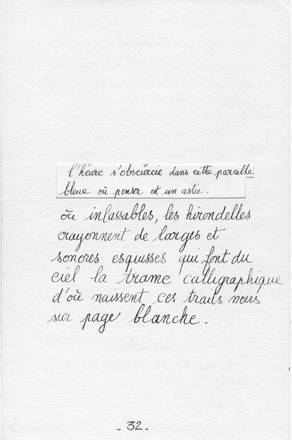 l'heure s'obscurcie dans cette parcelle
bleue où penser est un astre.
où inlassables, les hirondelles
crayonnent de larges et
sonores esquisses qui font du
ciel la trame calligraphique
d'où naissent ces traits noirs
sur page blanche.
- 32 -